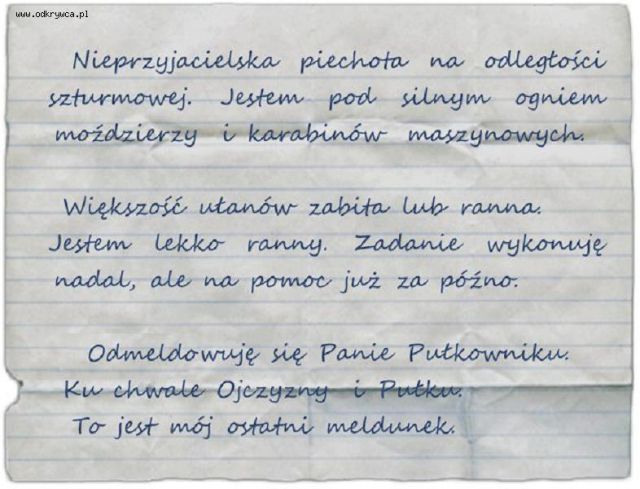 www.odkrywca.pl
Nieprzyjacielska piechota na odległości
szturmowej. Jestem pod silnym ogniem
moździerzy i karabinów maszynowych.
Większość ułanów zabita lub ranna.
Jestem lekko ranny. Zadanie wykonuję
nadal, ale na pomoc już za późno.
Odmeldowuję się Panie Pułkowniku.
Ku chwale Ojczyzny i Pułku.
To jest mój ostatni meldunek.